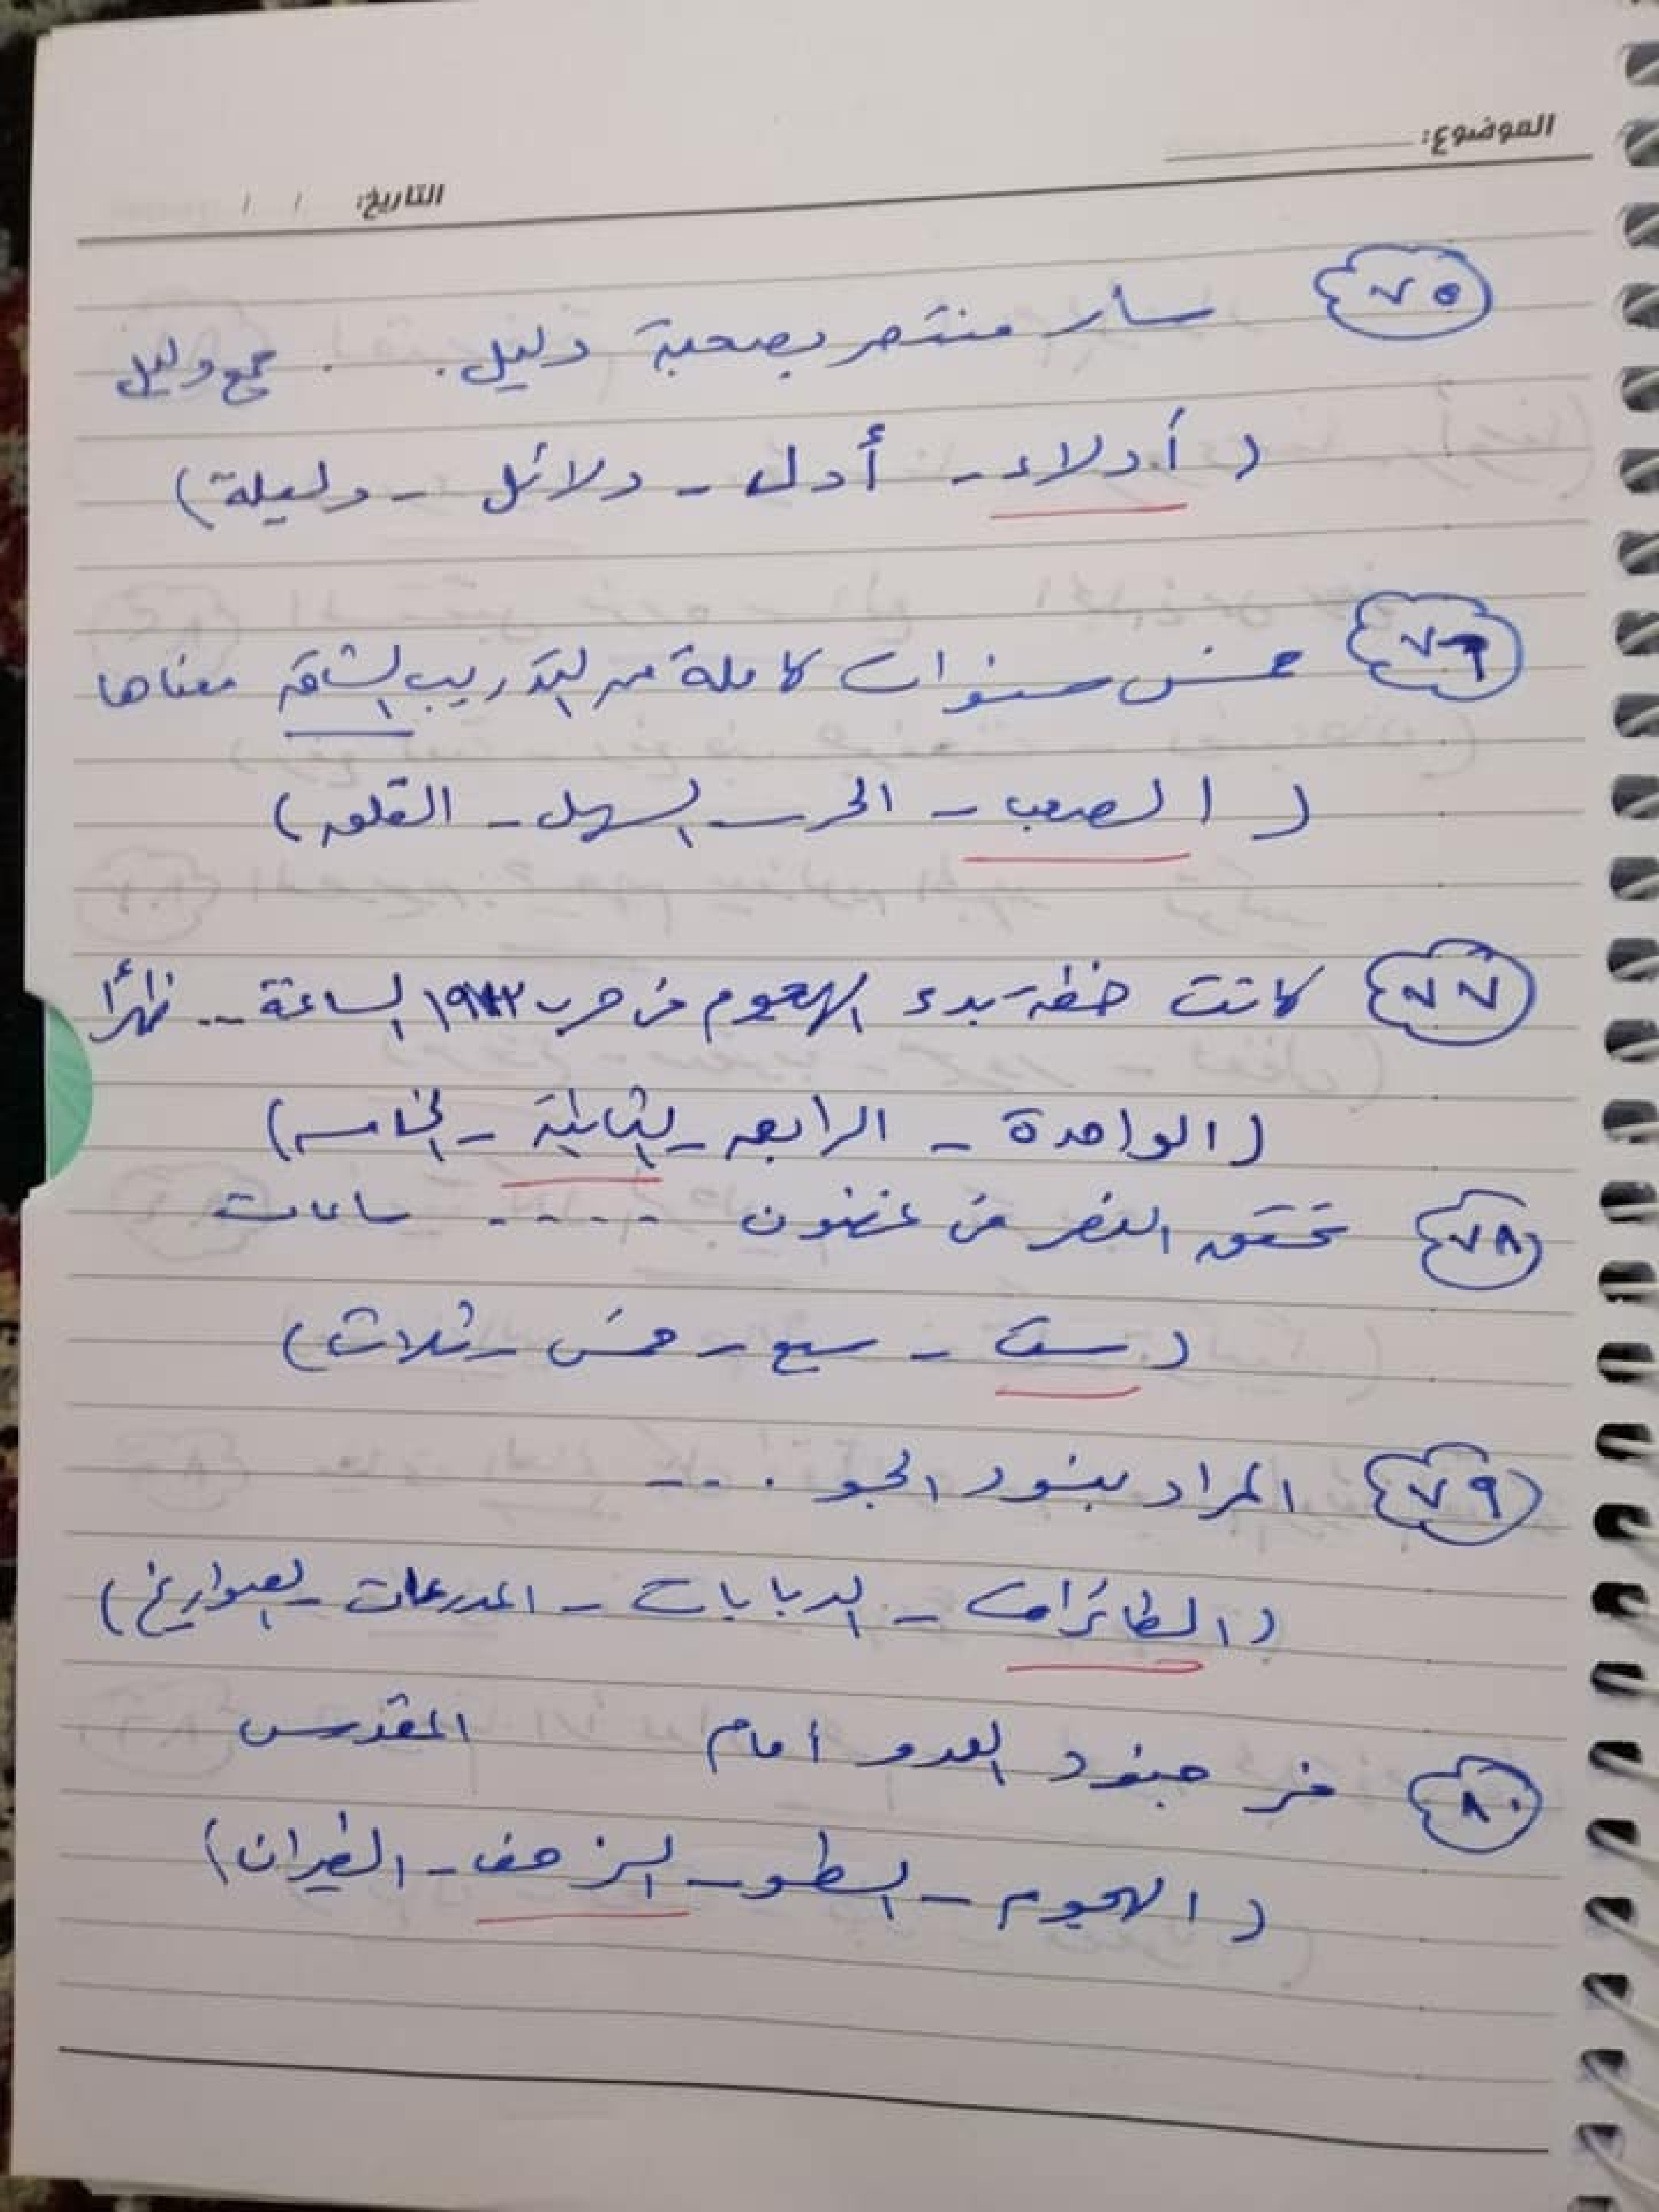 الموضوع:
التاريخ: / /
٧٥ سار منتصر بصحبة دليل. . جمع دليل
( أدلاء - أدل - دلائل - دليلة )
٧٦ خمس سنوات كاملة من التدريب الشاق معناها
( الصعب - الحر - السهل - القلق )
٧٧ كانت خطة بدء الهجوم في حرب ١٩٧٣ الساعة ... ظهرًا
( الواحدة - الرابعه - الثانية - الخامسه )
٧٨ تحقق النصر في غضون ..... ساعات
( ست - سبع - خمس - ثلاث )
٧٩ المراد بنسور الجو ....
( الطائرات - الدبابات - المدرعات - الصواريخ )
٨٠ فر جنود العدو أمام المقدس
( الهجوم - السطو - الزحف - الطيران )